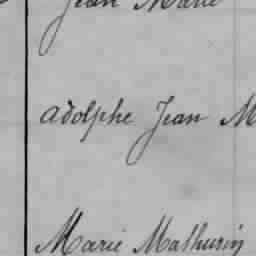 Jean Marie
Adolphe Jean M
Marie Mathurin